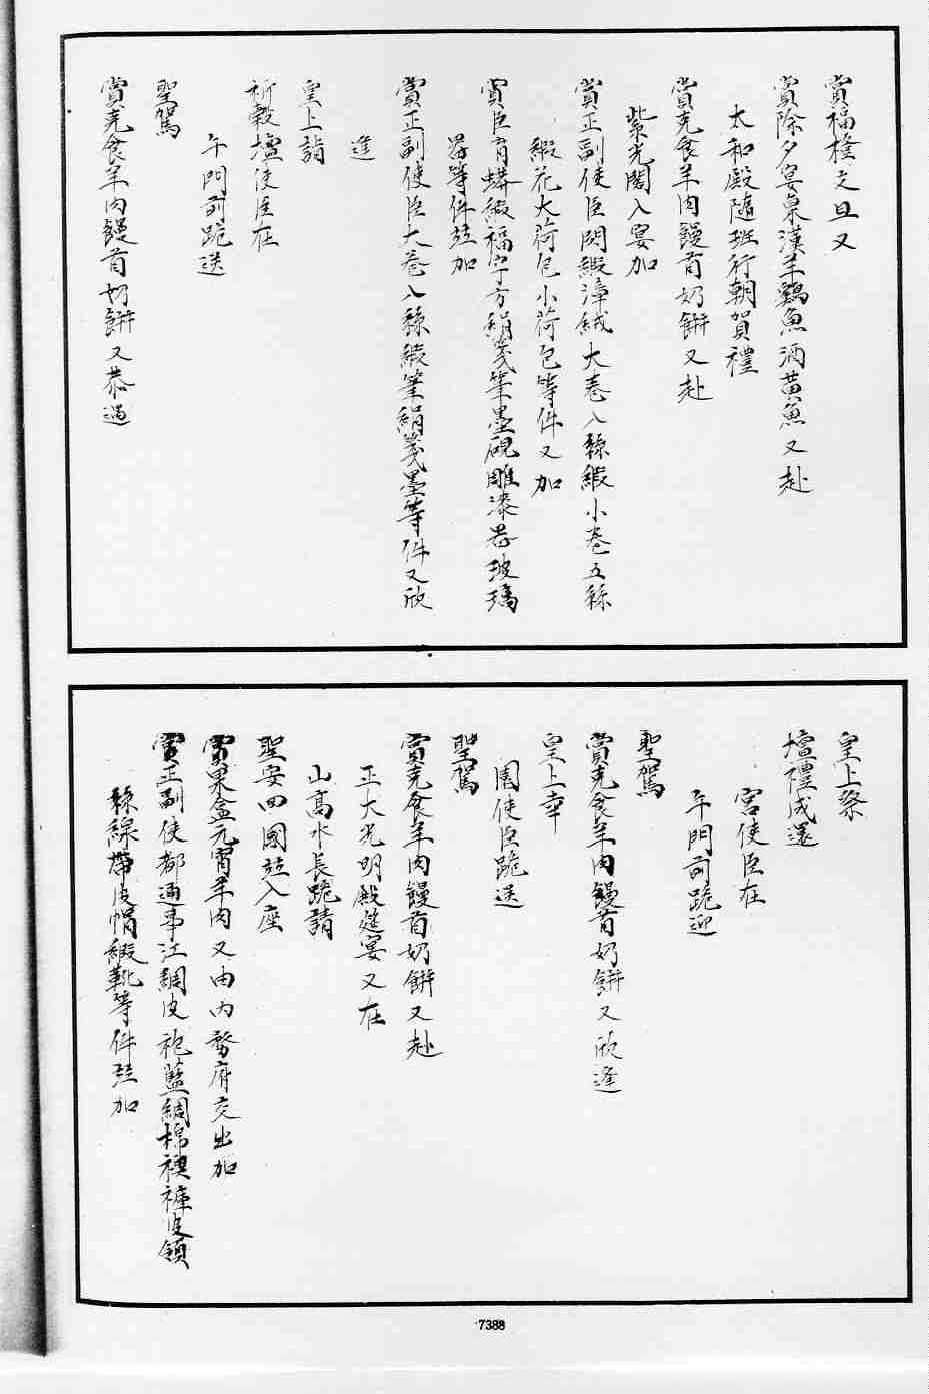 賞福橘文旦又
賞除夕宴桌漢羊鷄魚酒黄魚又赴
太和殿隨班行朝賀禮
賞克食羊肉饅首奶餅又赴
紫光閣入宴加
賞正副使臣閃緞漳絨大卷八絲緞小卷五絲
緞花大荷包小荷包等件又加
賞臣育蟒緞福字方絹箋筆墨硯雕漆器玻璃
器等件玆加
賞正副使臣大卷八絲緞筆絹箋墨等件又欣
進
皇上詣
祈穀壇使臣在
午門前跪送
聖駕
賞克食羊肉饅首奶餅又恭過
皇上祭
壇禮成還
宮使臣在
午門前跪迎
聖駕
賞克食羊肉饅首奶餅又欣逢
皇上幸
園使臣跪送
聖駕
賞克食羊肉饅首奶餅又赴
正大光明殿筵宴又在
山高水長跪請
聖安四國玆入座
賞果盒元宵羊肉又由内務府交出加
賞正副使都通事江綢皮袍藍綢棉襖褲皮領
絲線帶皮帽緞靴等件玆加
7388